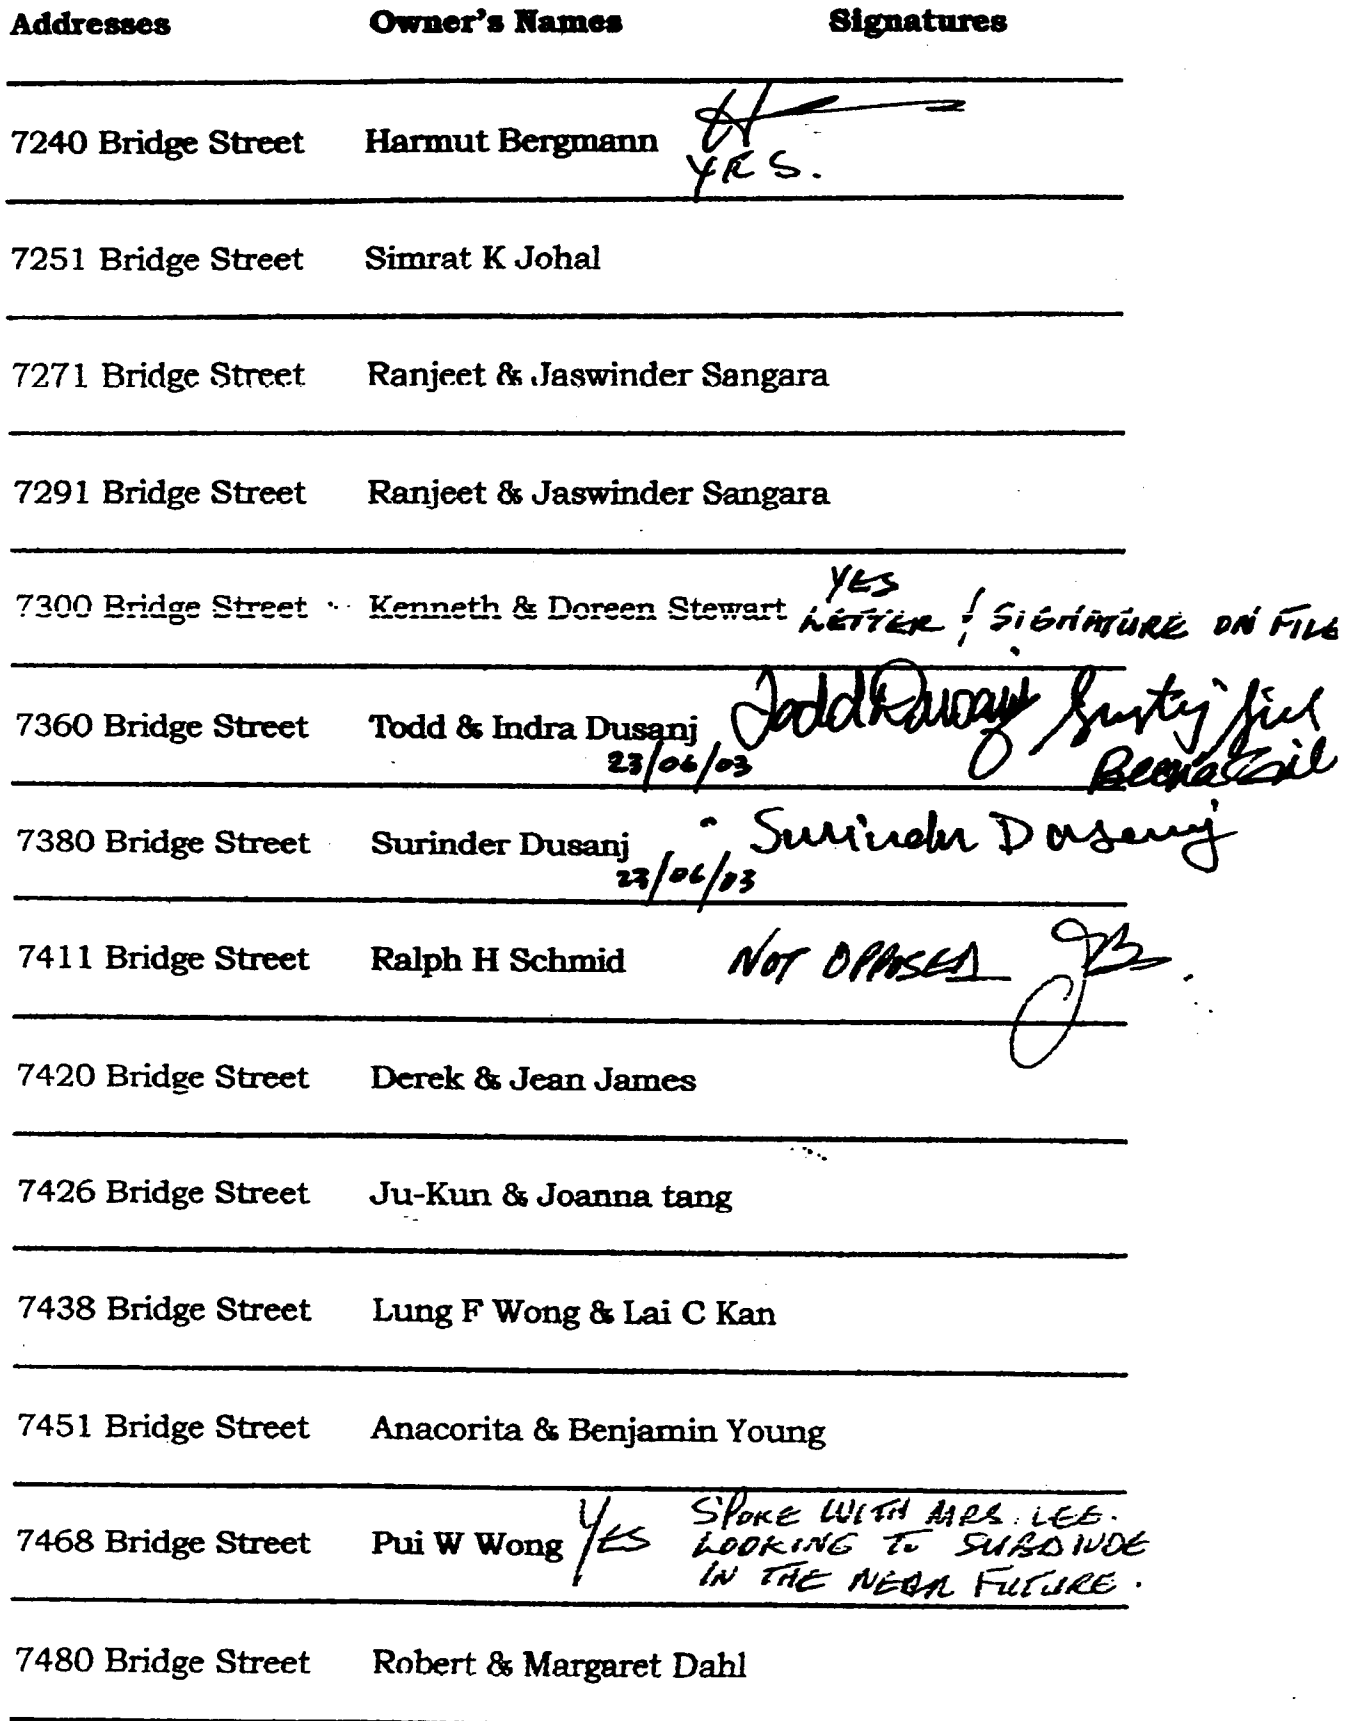 Addresses Owner's Names Signatures
7240 Bridge Street Harmut Bergmann
YES.
7251 Bridge Street Simrat K Johal
7271 Bridge Street Ranjeet & Jaswinder Sangara
7291 Bridge Street Ranjeet & Jaswinder Sangara
YES
7300 Bridge Street Kenneth & Doreen Stewart LETTER / SIGNATURE ON FILE
7360 Bridge Street Todd & Indra Dusanj Todd Dusanj
23/06/03
7380 Bridge Street Surinder Dusanj Surinder Dusanj
23/06/03
7411 Bridge Street Ralph H Schmid NOT OPPOSED
7420 Bridge Street Derek & Jean James
7426 Bridge Street Ju-Kun & Joanna tang
7438 Bridge Street Lung F Wong & Lai C Kan
7451 Bridge Street Anacorita & Benjamin Young
7468 Bridge Street Pui W Wong YES SPOKE WITH MRS. LEE.
LOOKING TO SUBDIVIDE
IN THE NEAR FUTURE.
7480 Bridge Street Robert & Margaret Dahl